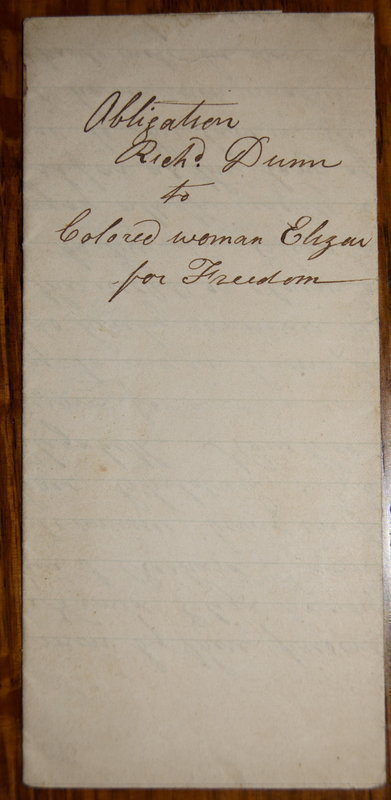 Obligation
Richd. Dunn
to
Colored woman Elizar
for Freedom